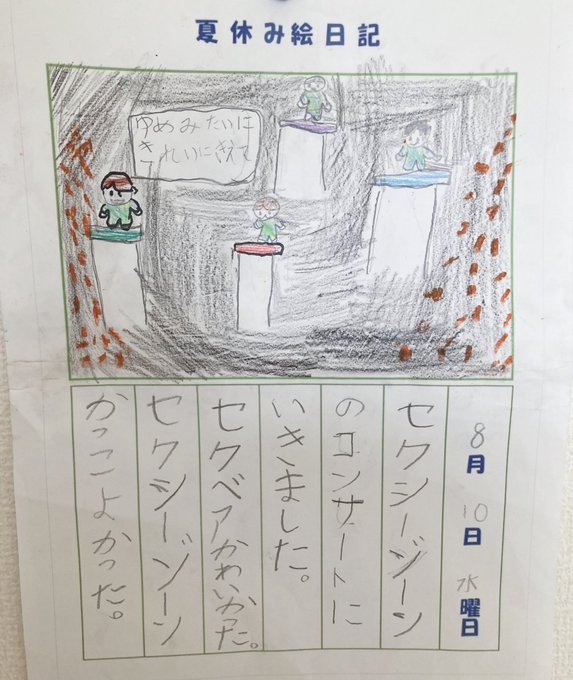 夏休み絵日記
ゆめみたいに
きれいにきえて
8月10日水曜日
セクシーゾーン
のコンサートに
いきました。
セクベアかわいかった。
セクシーゾーン
かっこよかった。